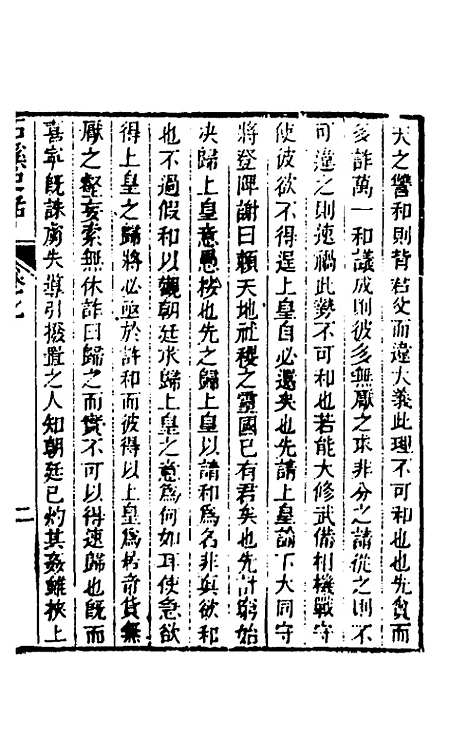 天之讐和則背君父而違大義此理不可和也也先貪而
多詐萬一和議成則彼多無厭之求非分之請從之則不
可違之則速禍此勢不可和也若能大修武備相機戰守
使彼欲不得逞上皇自必還矣也先請上皇諭下大同守
將登陴謝曰賴天地社稷之靈國已有君矣也先計窮始
决歸上皇意愚按也先之歸上皇以請和爲名非真欲和
也不過假和以覘朝廷求歸上皇之意爲何如耳使急欲
得上皇之歸將必亟於許和而彼得以上皇爲奇貨無
厭之壑妄索無休詐曰歸之而實不可以得速歸也旣而
喜寧旣誅虜失導引撥置之人知朝廷已灼其姦雖挾上
石溪史話
卷七
二